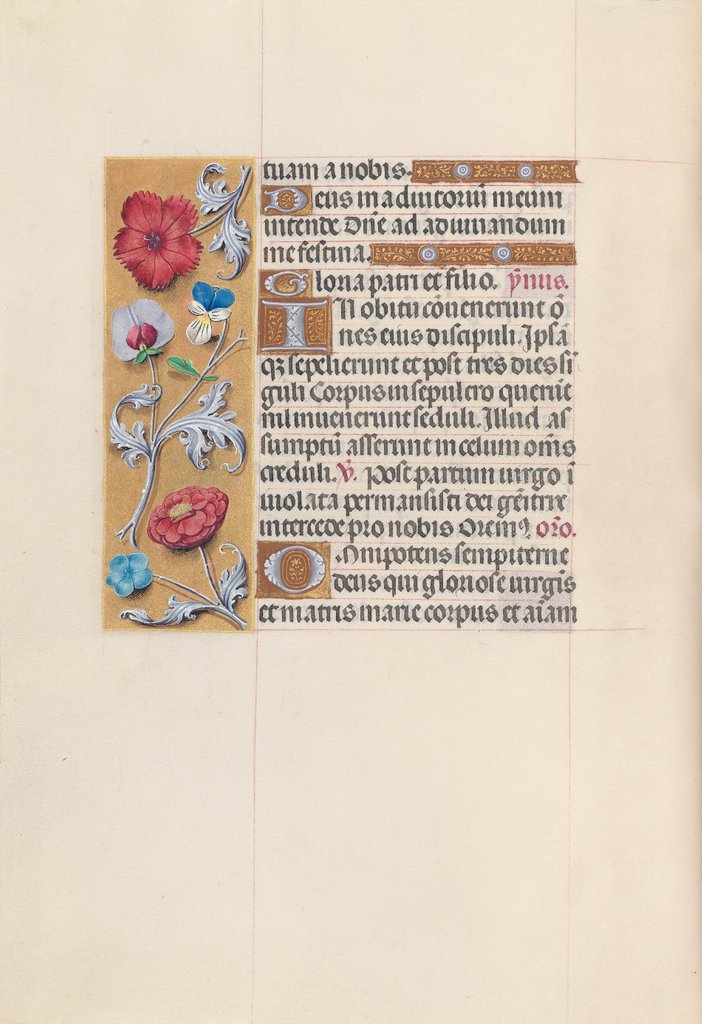 tuam a nobis.
Deus in adiutoriū meum
intende Dn̄e ad adiuuandum
me festina.
Gloria patri et filio. ym̄nus.
In obitu cōuenerunt ō
nes eius discipuli. Ipsā
qȝ sepelierunt et post tres dies si
guli Corpus in sepulcro querūt
nil inuenerunt seduli. Illud as
sumptū asserunt in celum om̄s
creduli. V̄. Post partum uirgo ī
uiolata permansisti dei gēitrix
intercede pro nobis Oremꝰ. oīo.
Omnipotens sempiterne
deus qui gloriose uirgīs
et matris marie corpus et aīam